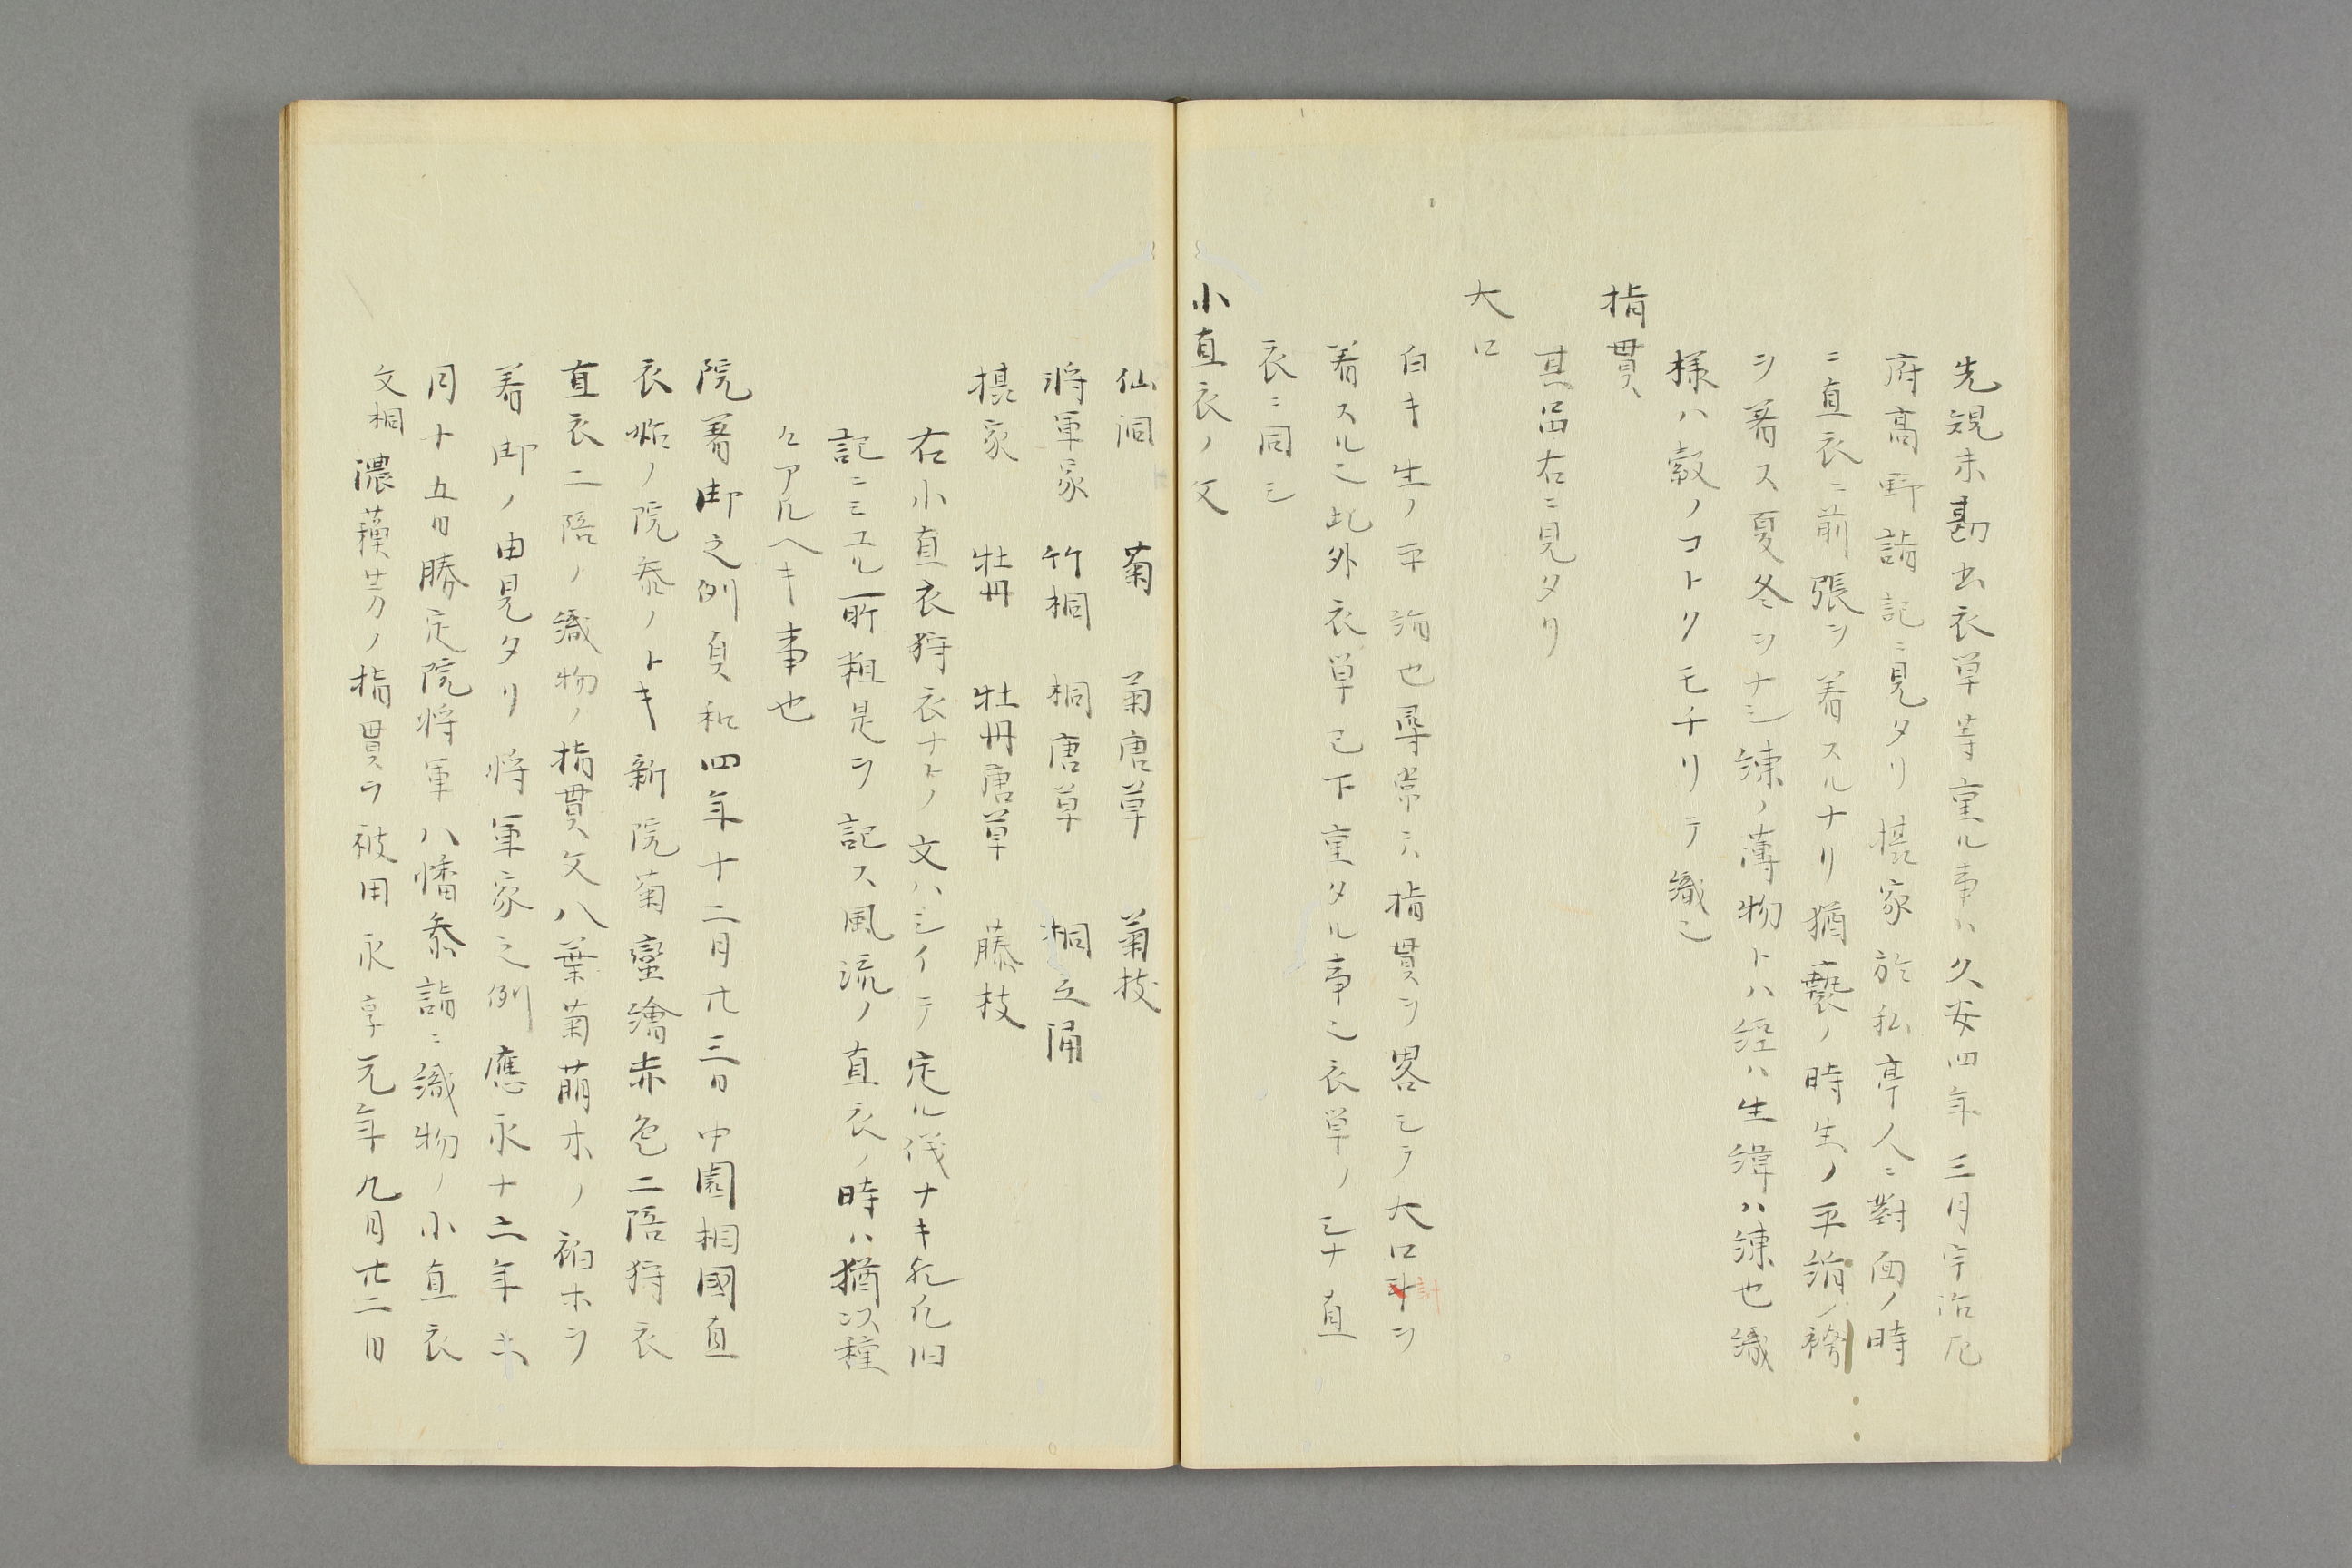 先規未勘出衣単等重ル事ハ久安四年三月宇治左
府高野詣記ニ見タリ摂家於私亭人ニ對面ノ時
ニ直衣ニ前張ヲ着スルナリ猶褻ノ時生ノ平絹ノ袴
ヲ着ス夏冬ヲナシ練ノ薄物トハ経ハ生緯ハ練也織
様ハ縠ノコトクモチリテ織也
指貫
其品右ニ見タリ
大口
白キ生ノ平絹也尋常ニハ指貫ヲ畧シテ大口計ヲ
着スル也此外衣単已下重タル事也衣単ノ色ナト直
衣ニ同シ
小直衣ノ文
仙洞 菊 菊唐草 菊枝
将軍家 竹桐 桐唐草 桐立涌
摂家 牡丹 牡丹唐草 藤枝
右小直衣狩衣ナトノ文ハシイテ定ル儀ナキ歟凡旧
記ニミユル所粗是ヲ記ス風流ノ直衣ノ時ハ猶以種
々アルヘキ事也
院着御之例貞和四年十二月廿三日中園相國直
衣始ノ院参ノトキ新院菊蛮繪赤色二陪狩衣
直衣二陪ノ織物ノ指貫文八葉菊萠木ノ衵ホヲ
着御ノ由見タリ将軍家之例應永十二年
月十五日勝定院将軍八幡参詣ニ織物ノ小直衣
文桐濃蘓芳ノ指貫ヲ被用永享元年九月廿二日